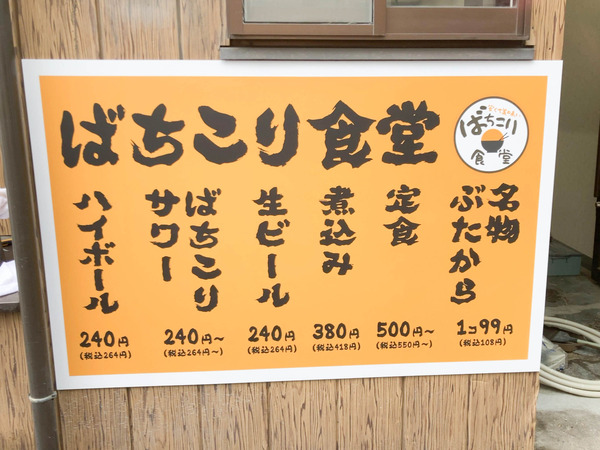 ばちこり食堂
ばちこり
食堂
名物
ぶたから
1コ99円
(税込108円)
定食
500円～
(税込550円～)
煮込み
380円
(税込418円)
生ビール
240円
(税込264円)
ばちこり
サワー
240円～
(税込264円～)
ハイボール
240円
(税込264円)